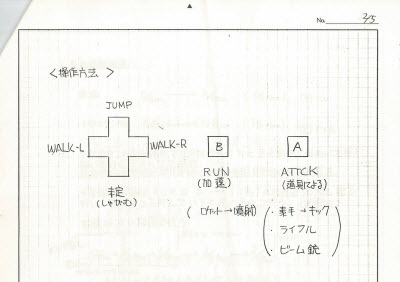 No. 2/5
＜操作方法＞
JUMP
WALK-L
WALK-R
B
A
RUN
ATTCK
(加速)
(道具による)
(しゃがむ)
(ロケット→噴射)
・素手→キック
・ライフル
・ビーム銃